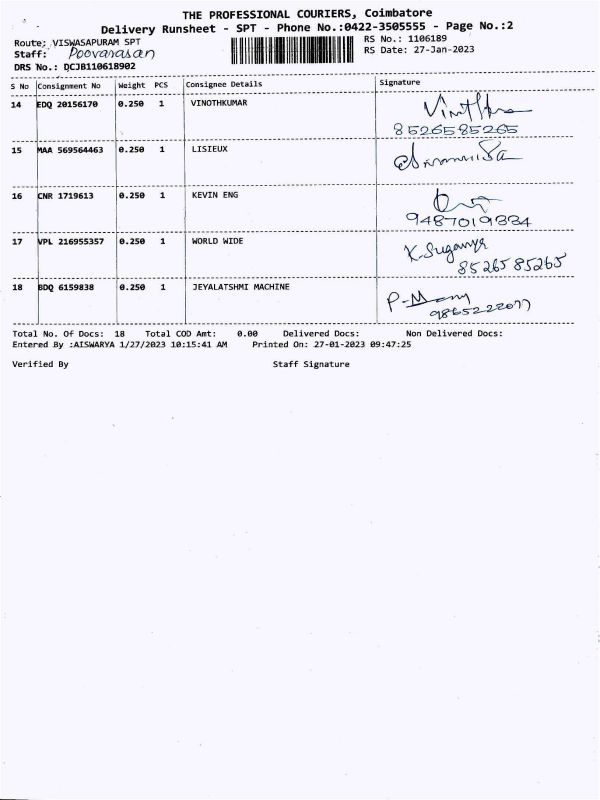 THE PROFESSIONAL COURIERS, Coimbatore
Delivery Runsheet - SPT - Phone No.:0422-3505555 - Page No.:2
Route: VISWASAPURAM SPT
RS No.: 1106189
Staff: Poovarasan
RS Date: 27-Jan-2023
DRS No.: DCJB110618902
S No Consignment No Weight PCS Consignee Details Signature
14 EDQ 20156170 0.250 1 VINOTHKUMAR
8526585265
15 MAA 569564463 0.250 1 LISIEUX
16 CNR 1719613 0.250 1 KEVIN ENG
9487019334
17 VPL 216955357 0.250 1 WORLD WIDE K. Suganya
8526585265
18 BDQ 6159838 0.250 1 JEYALATSHMI MACHINE
P-Many
9865222077
Total No. Of Docs: 18 Total COD Amt: 0.00 Delivered Docs: Non Delivered Docs:
Entered By :AISWARYA 1/27/2023 10:15:41 AM Printed On: 27-01-2023 09:47:25
Verified By Staff Signature